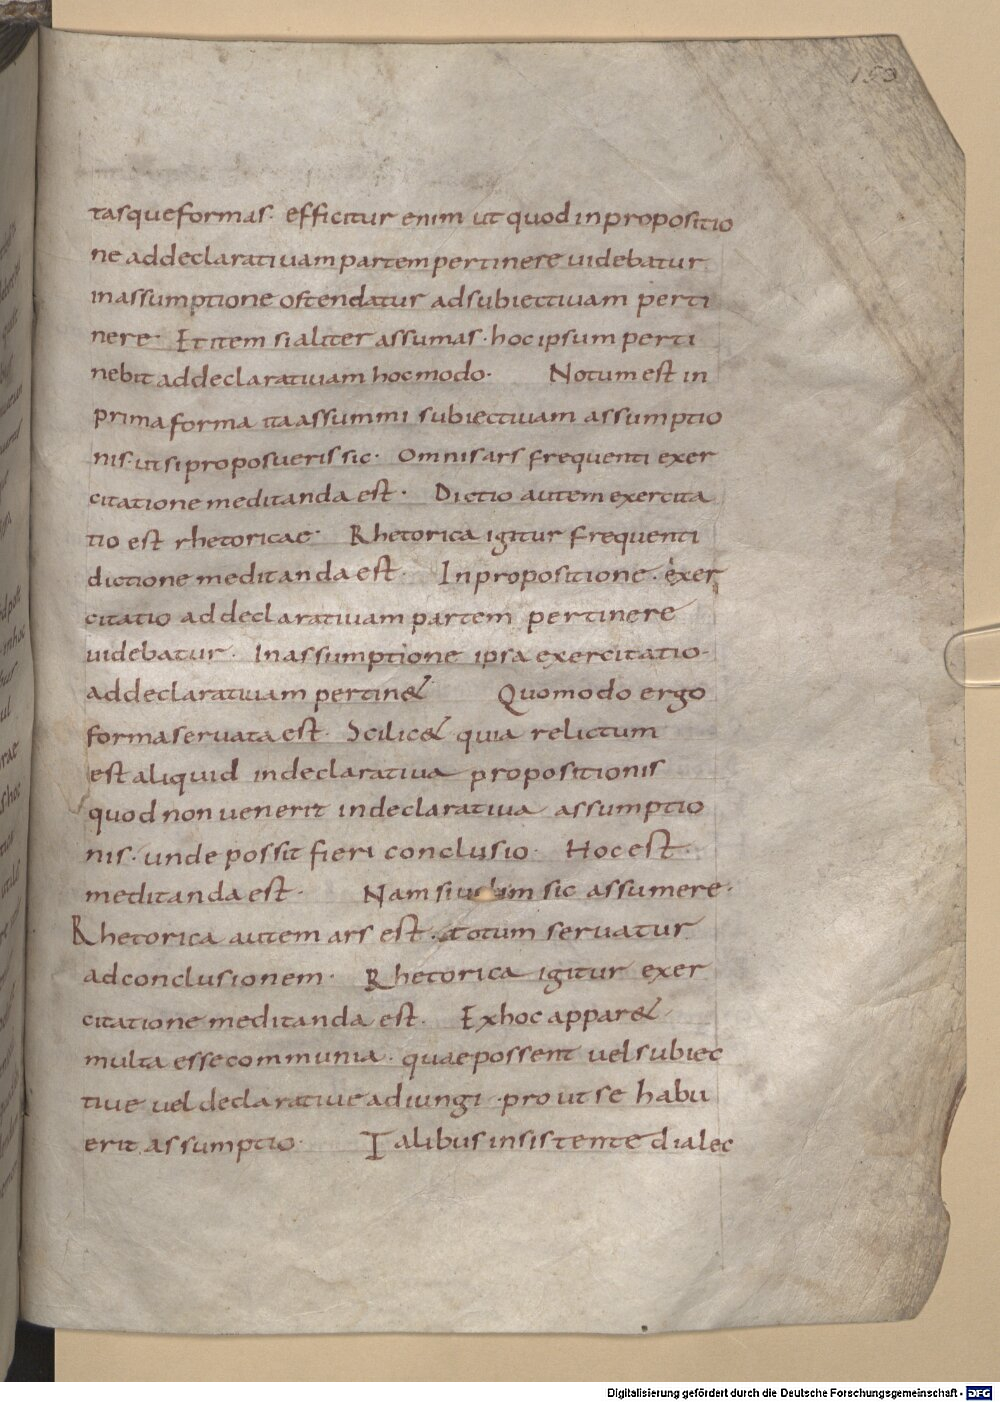 153
tasque formas. efficitur enim ut quod in propositio
ne ad declaratiuam partem pertinere uidebatur
in assumptione ostendatur ad subiectiuam perti
nere. Et item si aliter assumas. hoc ipsum perti
nebit ad declaratiuam hoc modo. Notum est in
prima forma ita assummi subiectiuam assumptio
nis. ut si proposueris sic. Omnis ars frequenti exer
citatione meditanda est. Dictio autem exercita
tio est rhetoricae. Rhetorica igitur frequenti
dictione meditanda est. In propositione. exer
citatio ad declaratiuam partem pertinere
uidebatur. In assumptione ipsa exercitatio
ad declaratiuam pertin& Quomodo ergo
forma seruata est. Scilic& quia relictum
est aliquid in declaratiua propositionis
quod non uenerit in declaratiua assumptio
nis. unde possit fieri conclusio. Hoc est
meditanda est. Nam si sic assumere.
Rhetorica autem ars est. totum seruatur
ad conclusionem. Rhetorica igitur exer
citatione meditanda est. Ex hoc appar&
multa esse communia. quae possent uel subiec
tiue uel declaratiue adiungi. pro ut se habu
erit assumptio. Talibus insistente dialec
Digitalisierung gefördert durch die Deutsche Forschungsgemeinschaft - DFG